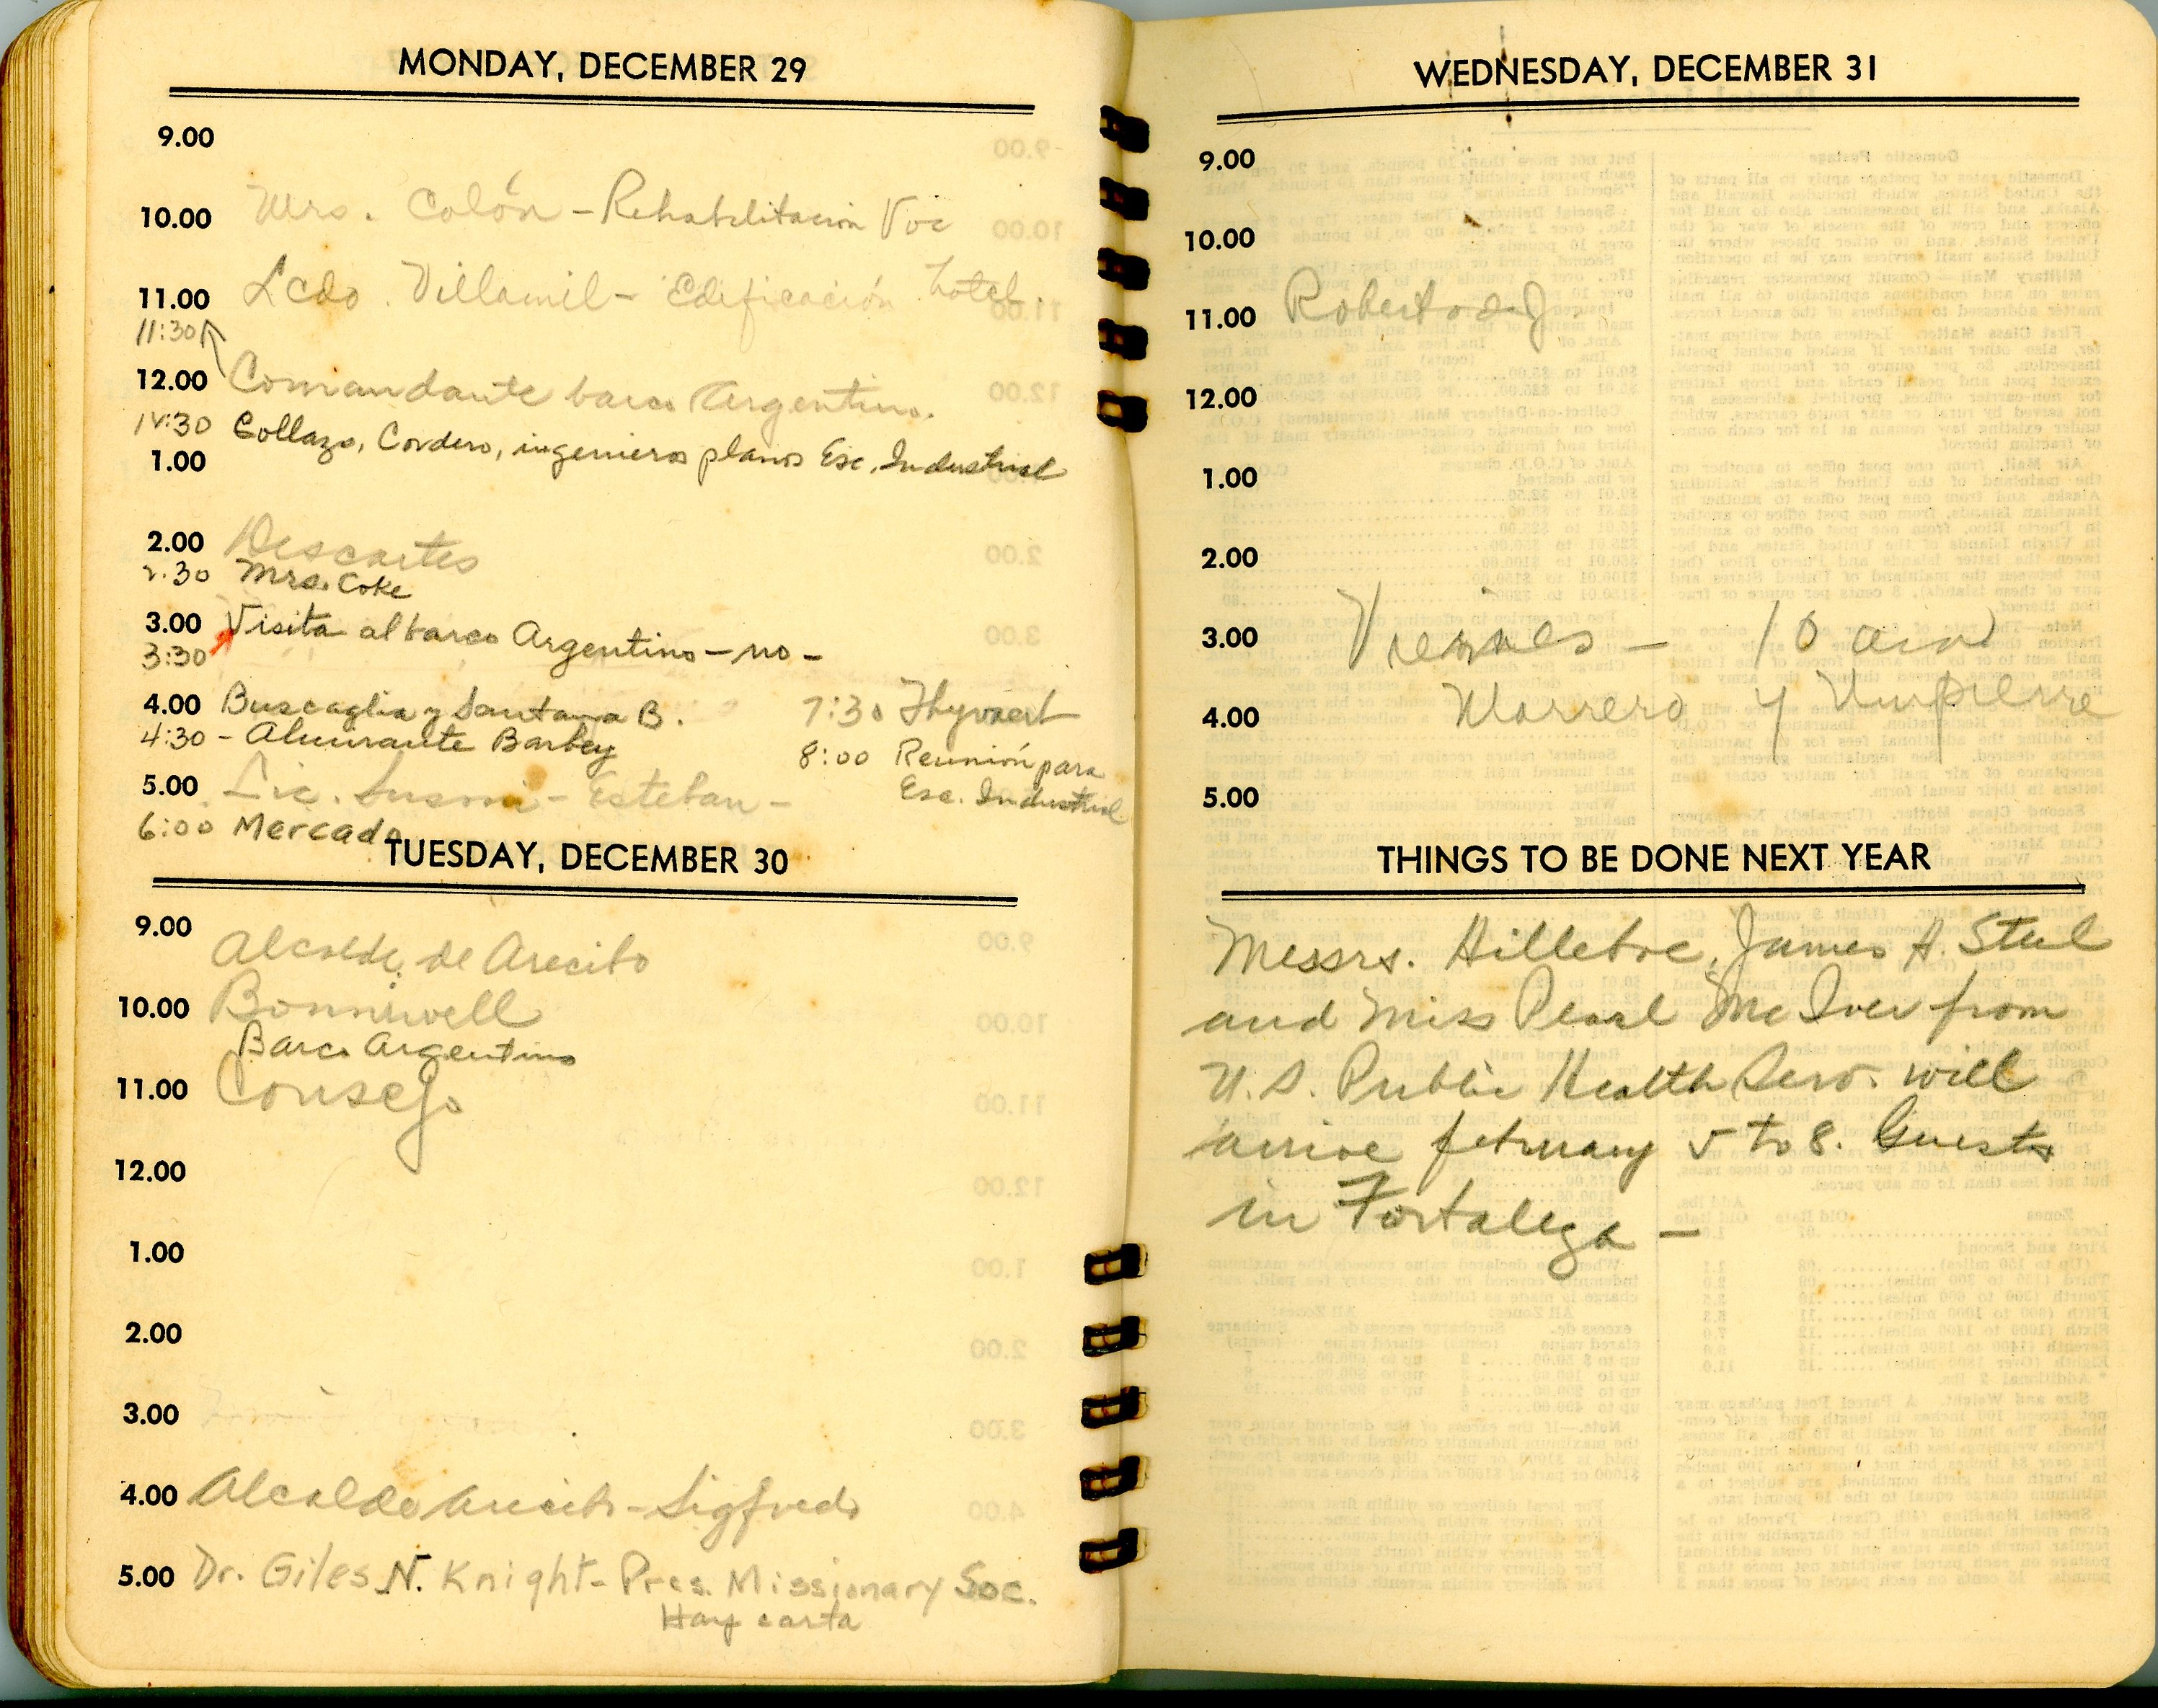 MONDAY, DECEMBER 29
9.00
10.00 Mrs. Colón - Rehabilitacion Voc
11.00 Lcdo. Villamil - Edificación hotel.
11:30
12.00 Comandante barco Argentino.
12:30 Collazo, Cordero, ingenieros planos Esc. Industrial
1.00
2.00 Descartes
2:30 Mrs. Coke
3.00 Visita al barco Argentino - no -
3:30
4.00 Buscaglia y Santana B.
4:30 - Almirante Barbey
5.00 Lic. - Esteban -
6:00 Mercado
7:30
8:00 Reunión para
Esc. Industrial
TUESDAY, DECEMBER 30
9.00 Alcalde de Arecibo
10.00 Bonniwell
Barco Argentino
11.00 Consejo
12.00
1.00
2.00
3.00
4.00 Alcalde Arecibo - Sigfredo
5.00 Dr. Giles N. Knight - Pres. Missionary Soc.
Hay carta
WEDNESDAY, DECEMBER 31
9.00
10.00
11.00 Roberto de J
12.00
1.00
2.00
3.00 Viernes - 10 am
4.00 Marrero y Umpierre
5.00
THINGS TO BE DONE NEXT YEAR
Messrs. Hilleboe, James A. Steel
and Miss Pearl Mc Iver from
U.S. Public Health Serv. will
arrive february 5 to 8. Guests
in Fortaleza -